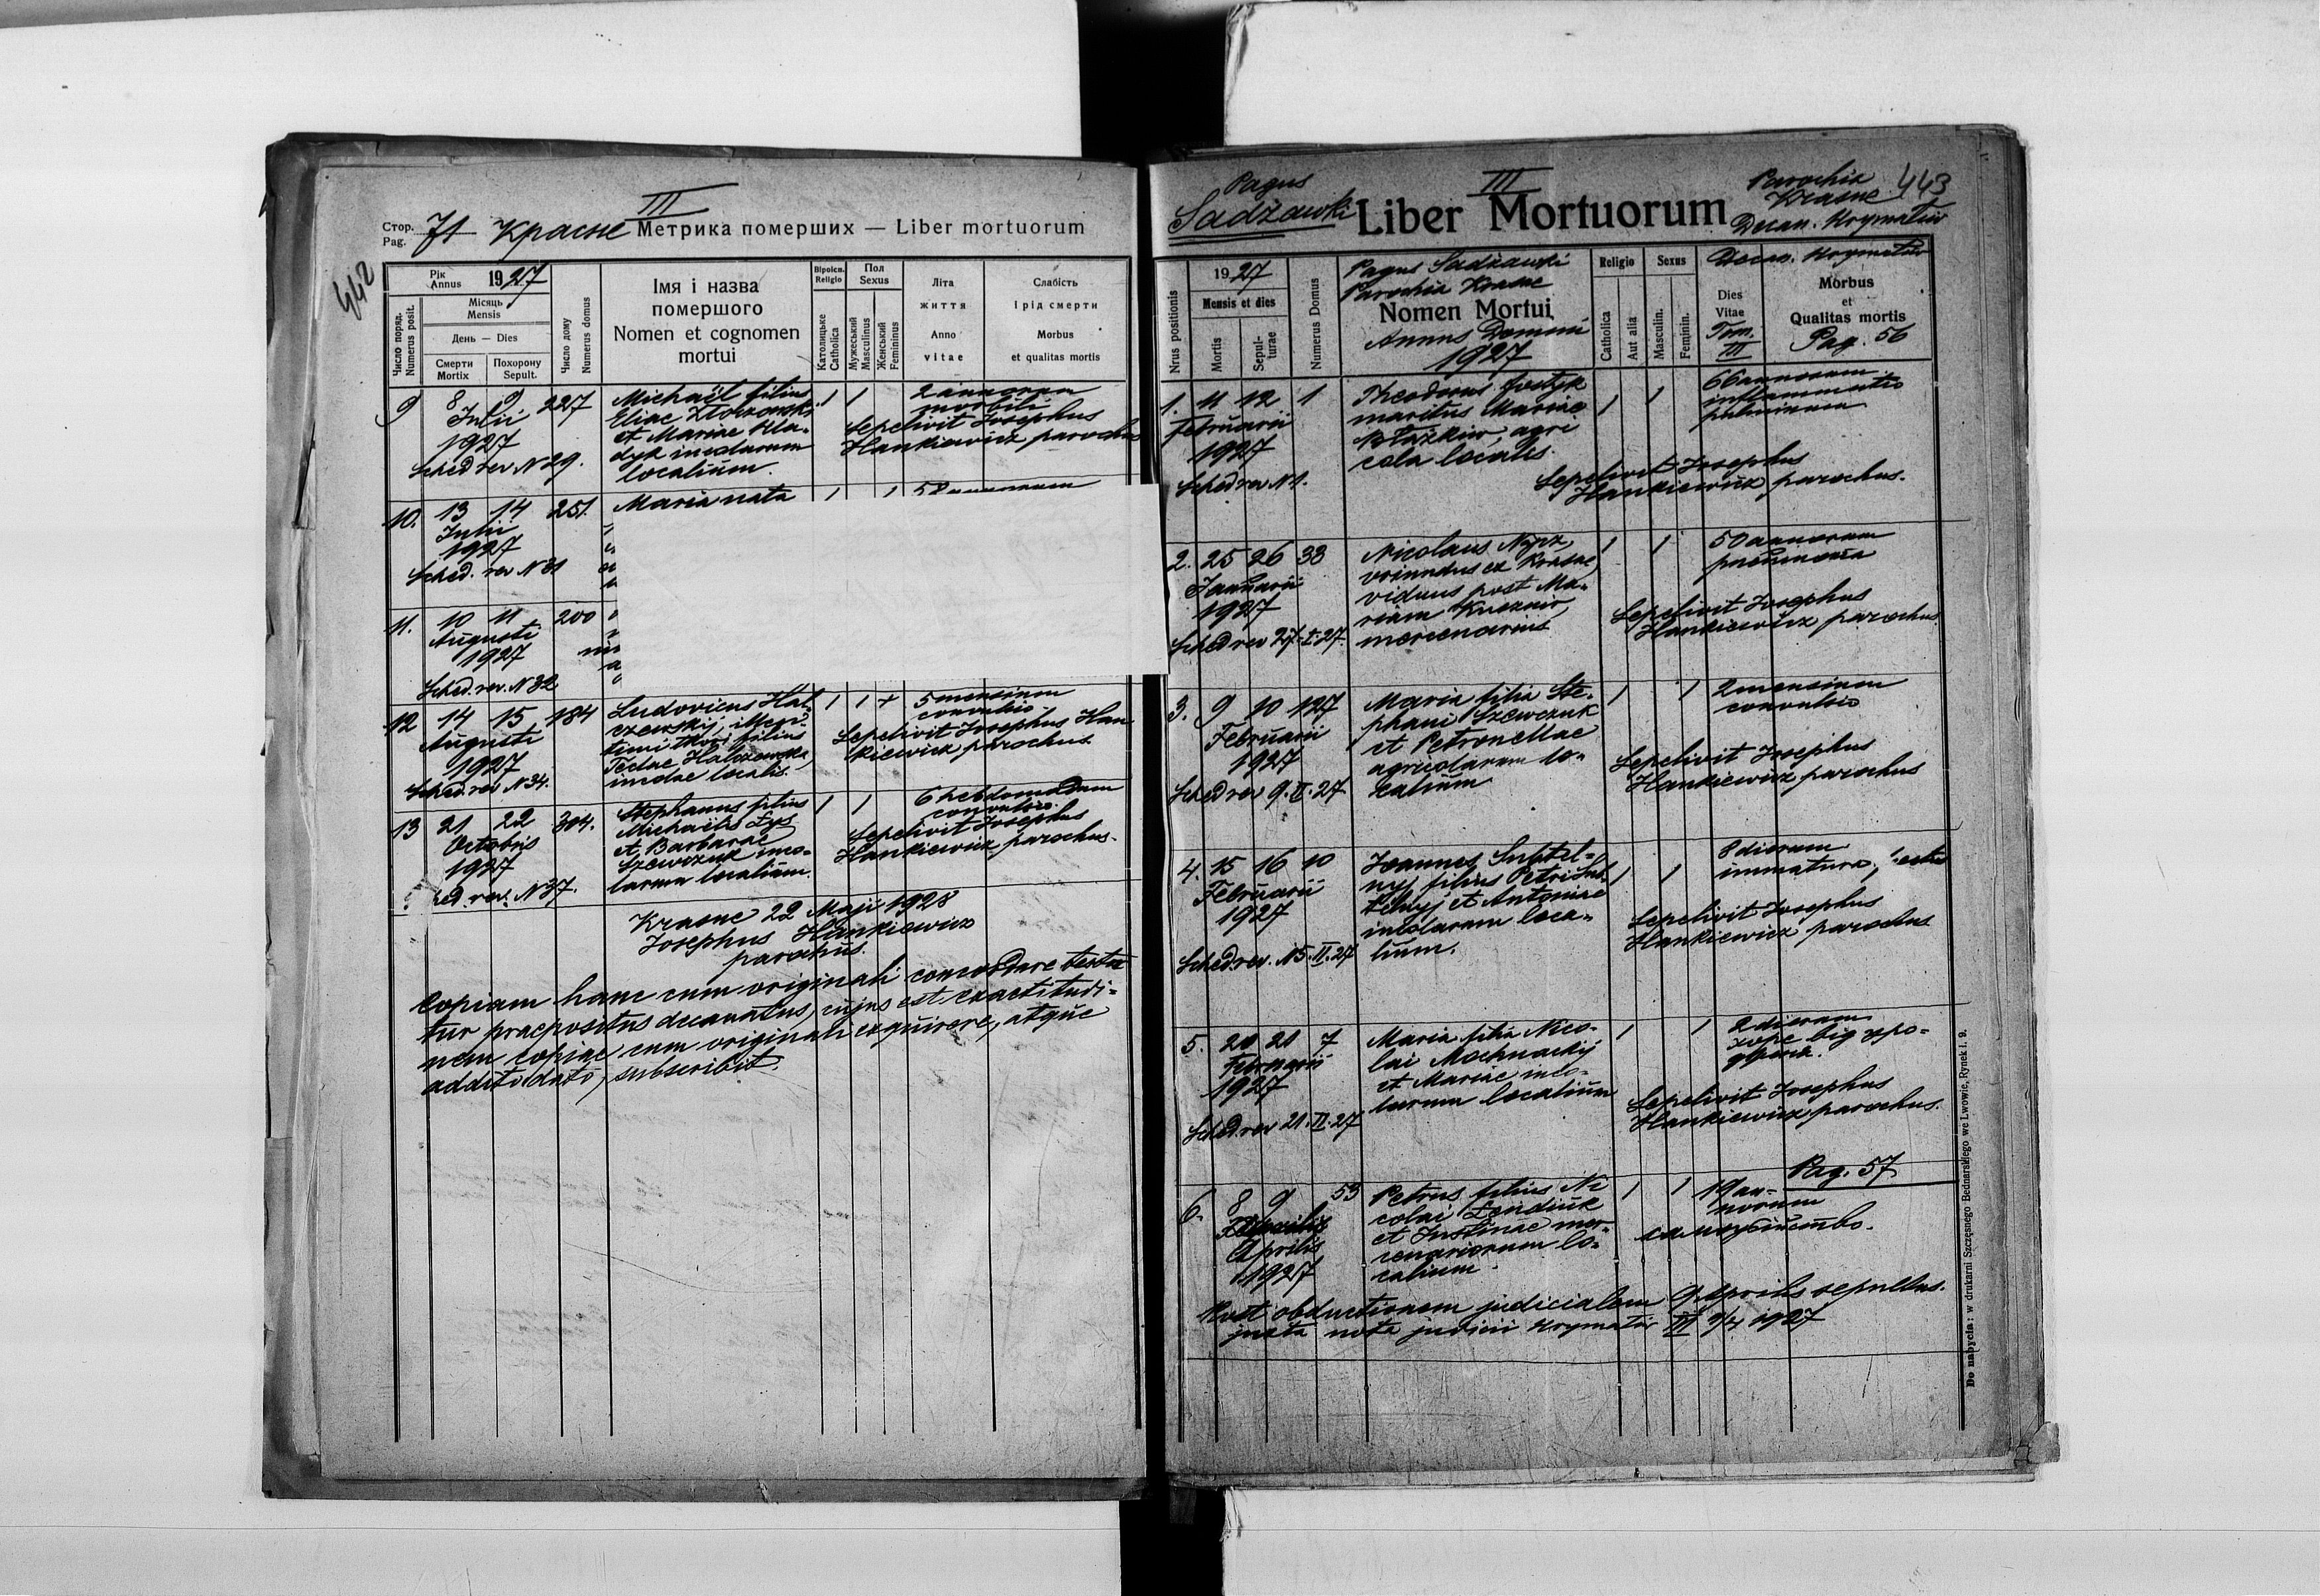 442
III
Стор. Pag. 71 Красне Метрика померших — Liber mortuorum
Рік Annus 1927
Місяць Mensis
День — Dies
Число поряд. Numerus posit.
Смерти Mortix
Похорону Sepult.
Число дому Numerus domus
Імя і назва
померщого
Nomen et cognomen
mortui
Віроісп. Religio
Католицьке Catholica
Пол Sexus
Мужеський Masculinus
Женський Femininus
Літа
життя
Anno
vitae
Слабість
і рід смерти
Morbus
et qualitas mortis
9 8 9 227 Michaël filius 1 1 2 annorum
Julii Eliae Złoczowski morbili
1927 et Mariae Hla- Sepelivit Josephus
Sched. rev. N 29. dyk incolarum Hankiewicz parochus
localium.
10. 13 14 251. Maria nata 1 1 58 annorum
Julii
1927
Sched. rev N 31
11. 10 11 200
Augusti
1927
Sched. rev. N 32
12 14 15 184 Ludovicus Hal- 1 1 + 5 mensium
Augusti czewskij, convulsio
1927 filius Sepelivit Josephus Han
Sched. rev N 34. Teclae Halczewska, kiewicz parochus
incolae localis.
13 21 22 304. Stephanus filius 1 1 6 hebdomadum
Octobris Michaëlis Łys convulsio
1927 et Barbarae Sepelivit Josephus
ched. rev. N 37. Szewczuk inco- Hankiewicz parochus.
larum localium.
Krasne 22 Maji 1928
Josephus Hankiewicz
parochus.
Copiam hanc cum originali concordare testa
tur praepositus decanatus, cujus est exactitudi-
nem copiae cum originali exquirere, atque
addito dato, subscribit.
Pagus
Sadżawki
III
Liber Mortuorum
Parochia
Krasne
443
Decan. Hrymałiw
Nrus positionis
1927
Mensis et dies
Mortis
Sepul-turae
Numerus Domus
Pagus Sadżawki
Parochia Krasne
Nomen Mortui
Annus Domini
1927
Religio
Catholica
Aut alia
Sexus
Masculin.
Feminin.
Decan. Hrymałiw
Dies
Vitae
Tom.
III
Morbus
et
Qualitas mortis
Pag. 56
1. 11 12 1 Theodorus Fostyk 1 1 66 annorum
Februarii maritus Mariae inflammatio
1927 Błażkiw, agri pulmonum
Sched rev N 1. cola localis.
Sepelivit Josephus
Hankiewicz parochus.
2. 25 26 38 Nicolaus 1 1 50 annorum
Januarii oriundus ex Krasne, pneumonia
1927 viduus post Ma-
riam
Sched rev 27.I.27. mercenarius
Sepelivit Josephus
Hankiewicz parochus
3. 9 10 127 Maria filia Ste- 1 1 2 mensium
Februarii phani Szewczuk convulsio
1927 et Petronellae
agricolarum lo-
Sched rev 9.II.27 calium
Sepelivit Josephus
Hankiewicz parochus
4. 15 16 10 Joannes Subtel- 1 1 8 dierum
Februarii nyj filius Petri Sub- immatura,
1927 telnyj et Antoniae
incolarum loca-
Sched. rev. 15.II.27 lium.
Sepelivit Josephus
Hankiewicz parochus
5. 20 21 7 Maria filia Nico- 1 1 2 dierum
Februarii lai Mochnackij хоре від уро-
1927 et Mariae inco-
larum localium
Sched. rev 21.II.27
Sepelivit Josephus
Hankiewicz parochus.
Pag. 57
6. 8 9 53 Petrus filius Ni 1 1 19 an-
colai Łendiuk norum
Aprilis et Justinae mer-
1927 cenariorum lo-
calium
Post obductionem judicialem 9 Aprilis sepultus.
juxta nota judicii Hrymałiw III 9/4 1927
Do nabycia: w drukarni Szczęsnego Bednarskiego we Lwowie, Rynek l. 9.